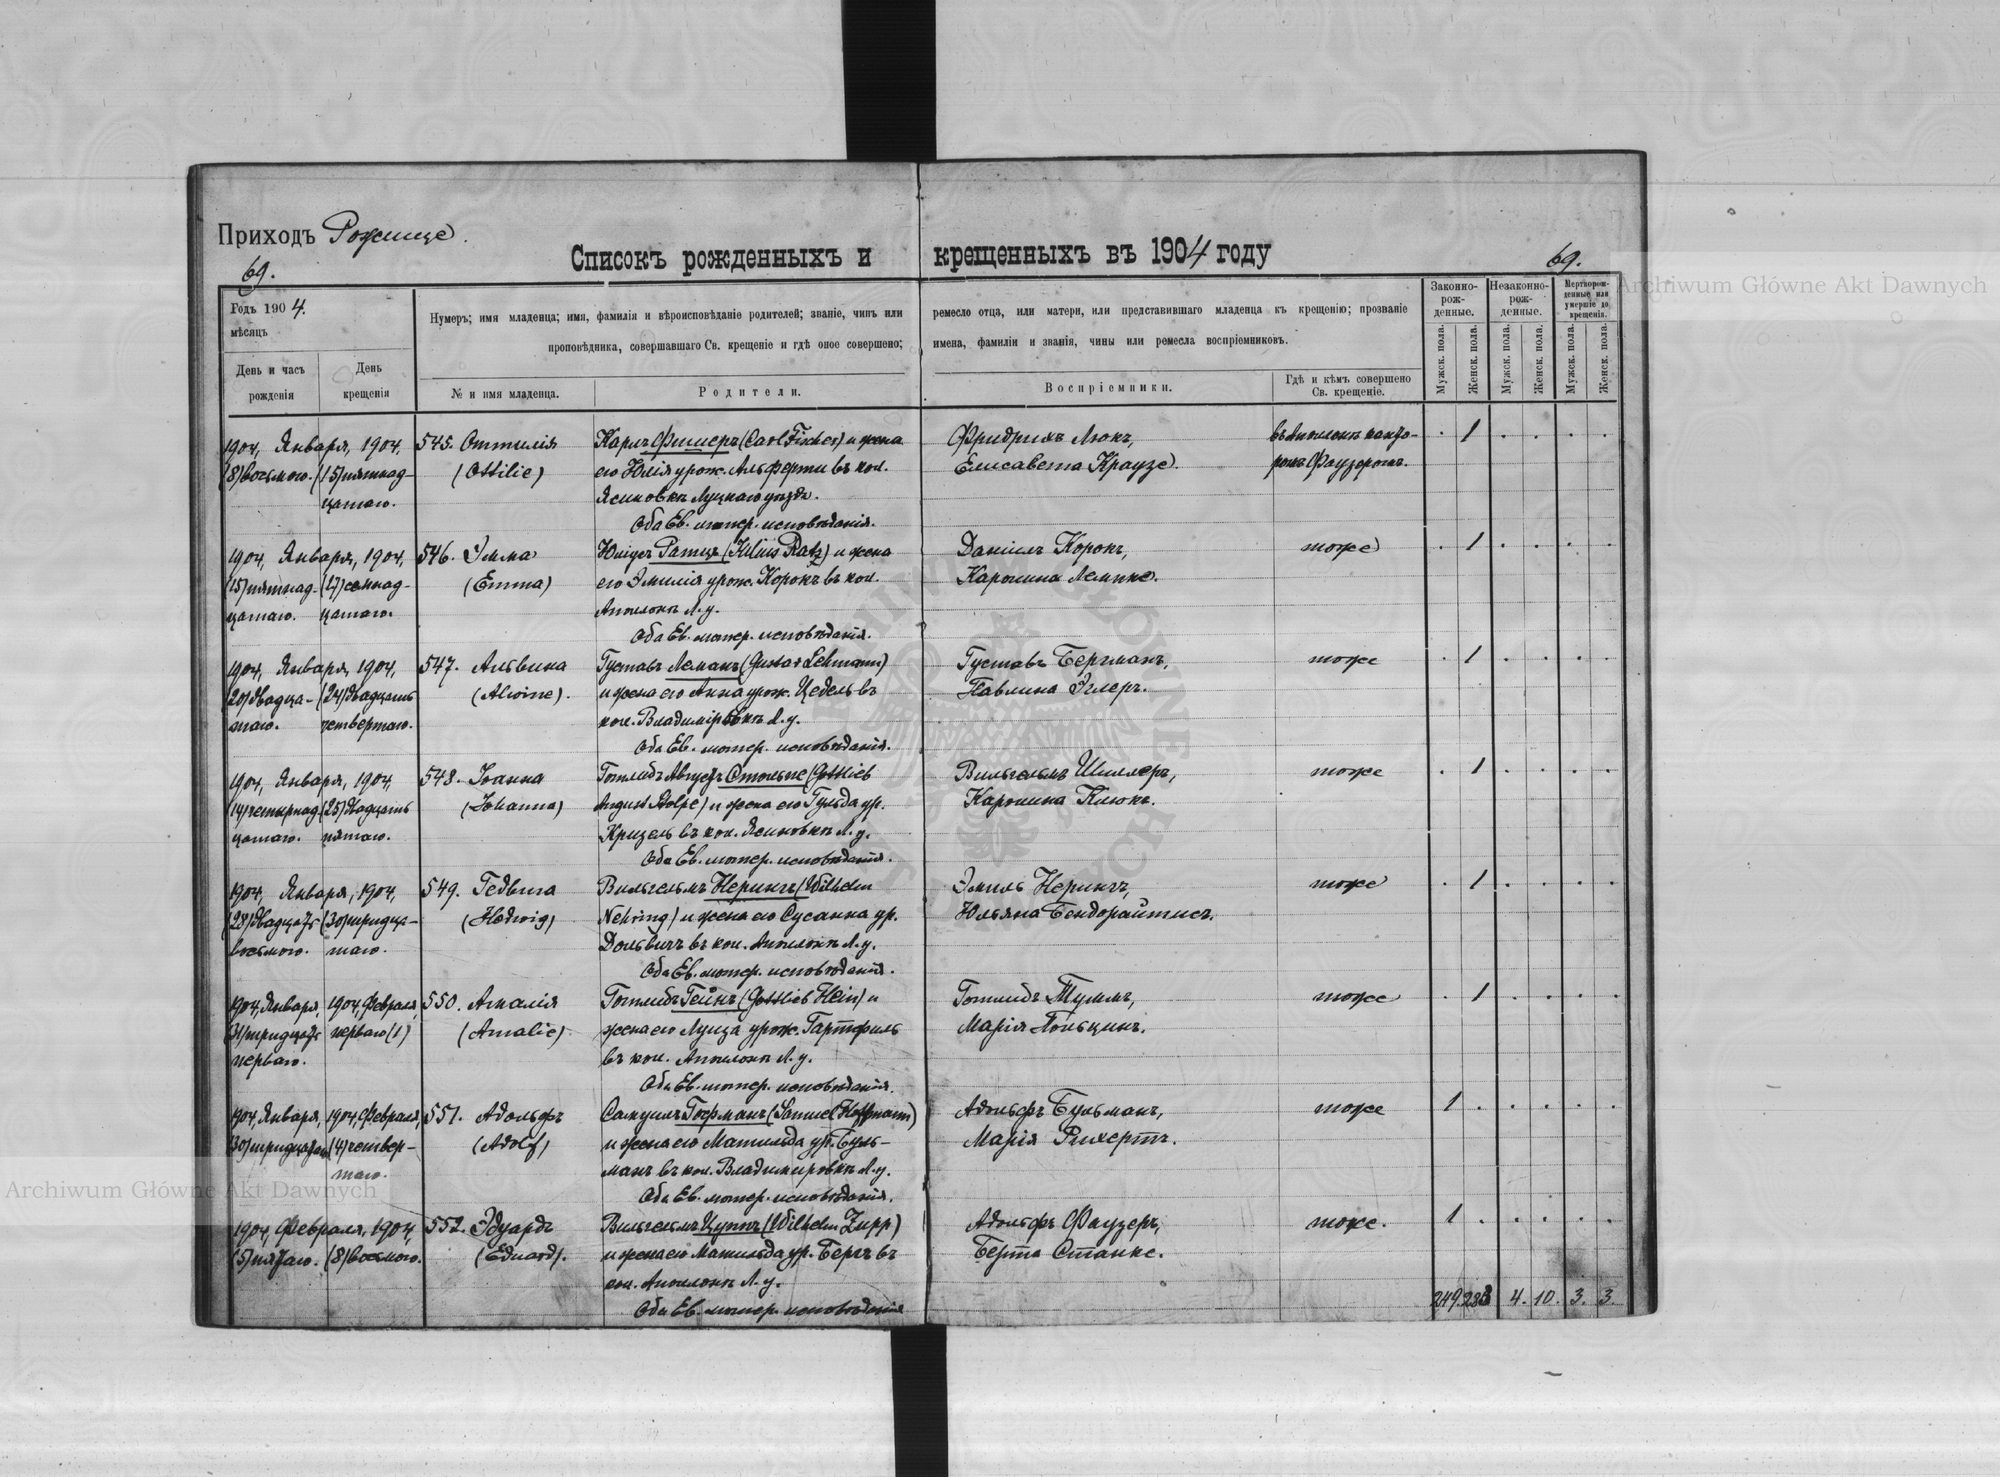 Приходъ Рожище.
69.
Списокъ рожденныхъ и крещенныхъ въ 1904 году
69.
Годъ 1904.
мѣсяцъ
День и часъ рожденія
День крещенія
Нумеръ; имя младенца; имя, фамилія и вѣроисповѣданіе родителей; званіе, чинъ или ремесло отца, или матери, или представившаго младенца къ крещенію; прозваніе
проповѣдника, совершавшаго Св. крещеніе и гдѣ оное совершено; имена, фамиліи и званія, чины или ремесла воспріемниковъ.
№ и имя младенца.
Родители.
Воспріемники.
Гдѣ и кѣмъ совершено
Св. крещеніе.
Законно-
рож-
денные.
Незаконно-
рож-
денные.
Мертворож-
денные или
умершіе до
крещенія.
Мужск. пола.
Женск. пола.
Мужск. пола.
Женск. пола.
Мужск. пола.
Женск. пола.
1904, Января, 1904, 545. Оттилія Карлъ Фишеръ (Carl Fischer) и жена Фридрихъ Люкъ, въ Апилонк канто- . 1 . . . .
(8) восьмого. (15) пятнад- (Ottilie) его Юлія урож. Альферти въ кол. Елисавета Краузе. ромъ Фаузеромъ.
цатаго. Ясиновкѣ Луцкаго уѣзда.
Оба Ев. лютер. исповѣданія.
1904, Января, 1904, 546. Эмма Юліусъ Ратцъ (Julius Ratz) и жена Даніилъ Корокъ, тоже . 1 . . . .
(15) пятнад- (17) семнад- (Emma) его Эмилія урож. Корокъ въ кол. Каролина Лемпке.
цатаго. цатаго. Апилонк Л. у.
Оба Ев. лютер. исповѣданія.
1904, Января, 1904, 547. Альвина Густавъ Леманъ (Gustav Lehmann) Густавъ Бергманъ, тоже . 1 . . . .
(20) двадца- (24) двадцать (Alwine). и жена его Анна урож. Цедель въ Павлина Эглеръ.
таго. четвертаго. кол. Владиміровкѣ Л. у.
Оба Ев. лютер. исповѣданія.
1904, Января, 1904, 548. Іоанна Готлибъ Августъ Стольпе (Gottlieb Вильгельмъ Шиллеръ, тоже . 1 . . . .
(14) четырнад- (25) двадцать (Johanna) August Stolpe) и жена его Гульда ур. Каролина Клюкъ.
цатаго. пятаго. Кризель въ кол. Ясиновкѣ Л. у.
Оба Ев. лютер. исповѣданія.
1904, Января, 1904, 549. Гедвига Вильгельмъ Нерингъ (Wilhelm Эмиль Нерингъ, тоже . 1 . . . .
(28) двадцать (30) тридца- (Hedwig) Nehring) и жена его Сусанна ур. Юльяна Бендорайтисъ.
восьмого. таго. Дольвигъ въ кол. Апилонк Л. у.
Оба Ев. лютер. исповѣданія.
1904, Января, 1904, Февраля, 550. Амалія Готлибъ Гейнъ (Gottlieb Hein) и Готлибъ Тумъ, тоже . 1 . . . .
(31) тридцать перваго (1) (Amalie) жена его Луиза урож. Гартфиль Марія Польцинъ.
перваго. въ кол. Апилонк Л. у.
Оба Ев. лютер. исповѣданія.
1904, Января, 1904, Февраля, 551. Адольфъ Самуилъ Гофманъ (Samuel Hoffmann) Адольфъ Бульманъ, тоже 1 . . . . .
(30) тридцатаго (4) четвер- (Adolf) и жена его Матильда ур. Буль- Марія Рихертъ.
таго. манъ въ кол. Владимировкѣ Л. у.
Оба Ев. лютер. исповѣданія.
1904, Февраля, 1904, 552. Эдуардъ Вильгельмъ Цуппъ (Wilhelm Zupp) Адольфъ Фаузеръ, тоже. 1 . . . . .
(5) пятаго. (8) восьмого. (Eduard). и жена его Матильда ур. Бергъ въ Берта Станке.
кол. Апилонк Л. у.
Оба Ев. лютер. исповѣданія
249. 288 4. 10. 3. 3.
Archiwum Główne Akt Dawnych
Archiwum Główne Akt Dawnych